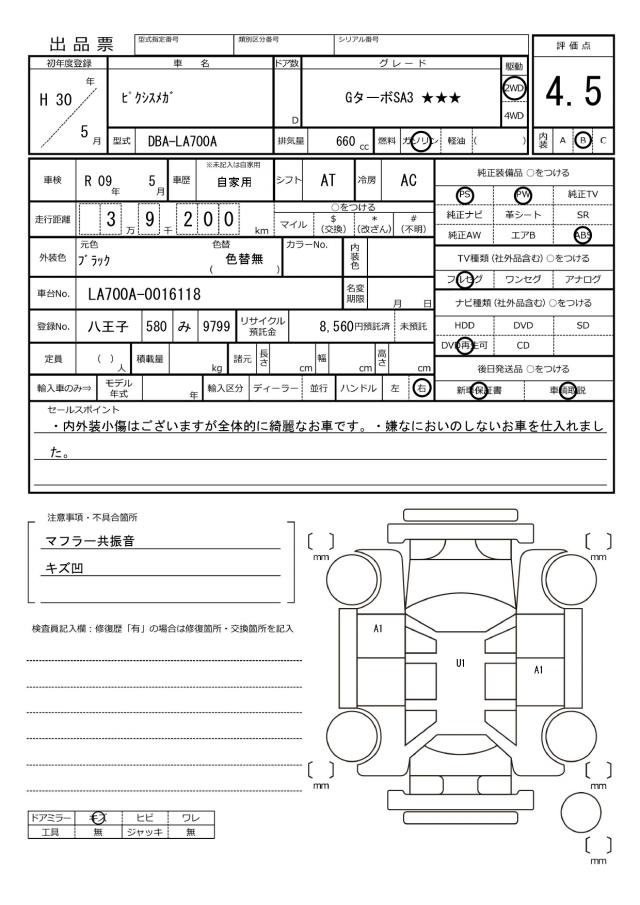 出品票
型式指定番号 類別区分番号 シリアル番号
評価点
4.5
初年度登録 車名 ドア数 グレード 駆動
H 30 年 5 月
ピクシスメガ
D
GターボSA3 ★★★
2WD
4WD
型式 DBA-LA700A 排気量 660 cc 燃料 ガソリン 軽油 ( )
内装 A B C
車検 R 09 年 5 月 車歴 ※未記入は自家用 自家用 シフト AT 冷房 AC
走行距離 3 万 9 千 2 0 0 km
○をつける
マイル $ (交換) * (改ざん) # (不明)
外装色 元色 ブラック 色替 色替無 ( ) カラーNo. 内装色
車台No. LA700A-0016118 名変期限 月 日
登録No. 八王子 580 み 9799 リサイクル預託金 8,560円預託済 未預託
定員 ( ) 人 積載量 kg 諸元 長さ cm 幅 cm 高さ cm
輸入車のみ⇒ モデル年式 年 輸入区分 ディーラー 並行 ハンドル 左 右
純正装備品 ○をつける
PS PW 純正TV
純正ナビ 革シート SR
純正AW エアB ABS
TV種類(社外品含む) ○をつける
フルセグ ワンセグ アナログ
ナビ種類(社外品含む) ○をつける
HDD DVD SD
DVD再生可 CD
後日発送品 ○をつける
新車保証書 車輌取説
セールスポイント
・内外装小傷はございますが全体的に綺麗なお車です。・嫌なにおいのしないお車を仕入れまし
た。
注意事項・不具合箇所
マフラー共振音
キズ凹
検査員記入欄：修復歴「有」の場合は修復箇所・交換箇所を記入
〔 〕 mm
〔 〕 mm
A1
U1
A1
〔 〕 mm
〔 〕 mm
〔 〕 mm
ドアミラー キズ ヒビ ワレ
工具 無 ジャッキ 無